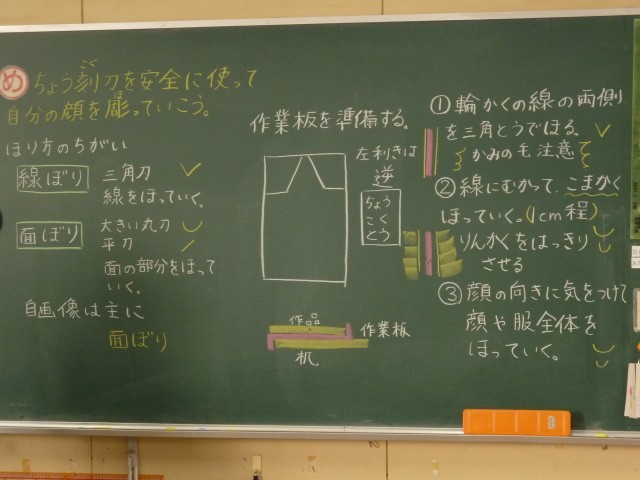 め ちょう刻刀を安全に使って
こく
自分の顔を彫っていこう。
ほり方のちがい
線ぼり 三角刀
線をほっていく。
面ぼり 大きい丸刀
平刀
面の部分をほって
いく。
自画像は主に
面ぼり
作業板を準備する。
左利きは
逆
ちょう
こく
とう
作品
作業板
机
①輪かくの線の両側
を三角とうでほる。
かみの毛注意
②線にむかって、こまかく
ほっていく。(1cm程)
りんかくをはっきり
させる
③顔の向きに気をつけて
顔や服全体を
ほっていく。